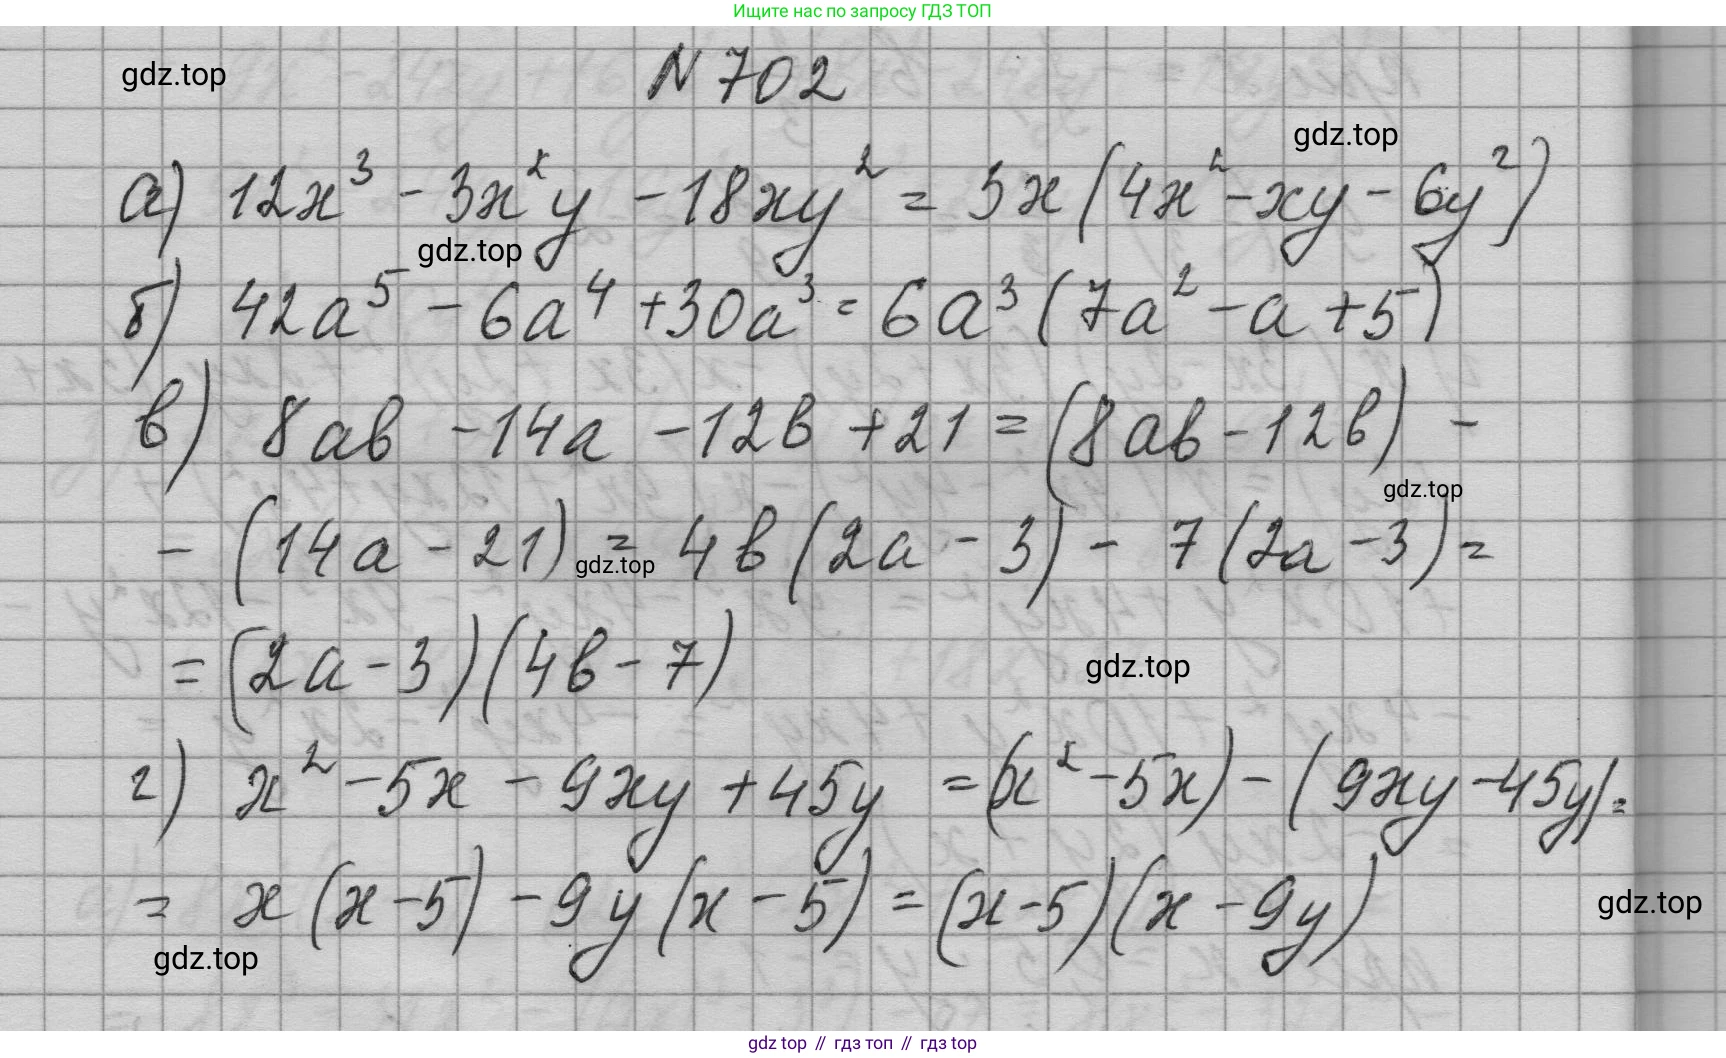 Ищите нас по запросу ГДЗ ТОП
gdz.top
N 702
gdz.top
а) 12x³ - 3x²y - 18xy² = 3x(4x² - xy - 6y²)
gdz.top
б) 42a⁵ - 6a⁴ + 30a³ = 6a³(7a² - a + 5)
в) 8ab - 14a - 12b + 21 = (8ab - 12b) -
gdz.top
- (14a - 21) = 4b(2a - 3) - 7(2a - 3) =
gdz.top
= (2a - 3)(4b - 7)
gdz.top
г) x² - 5x - 9xy + 45y = (x² - 5x) - (9xy - 45y) =
= x(x - 5) - 9y(x - 5) = (x - 5)(x - 9y)
gdz.top
gdz.top
gdz top // гдз топ // гдз top